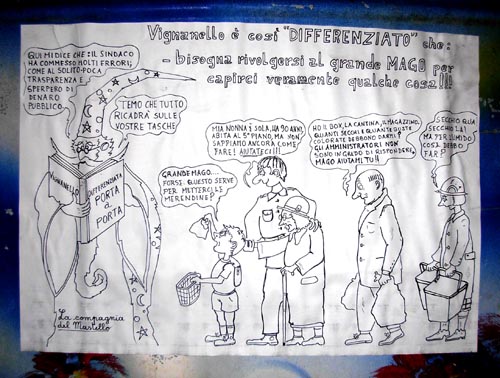 Vignanello è così "DIFFERENZIATO" che:
- bisogna rivolgersi al grande MAGO per
capirci veramente qualche cosa!!!
QUI MI DICE CHE: IL SINDACO
HA COMMESSO MOLTI ERRORI;
COME AL SOLITO-POCA
TRASPARENZA E
SPERPERO DI
DENARO
PUBBLICO.
TEMO CHE TUTTO
RICADRÀ SULLE
VOSTRE TASCHE
VIGNANELLO
DIFFERENZIATA
PORTA
a
PORTA
La compagnia
del Mastello
GRANDE MAGO....
FORSE: QUESTO SERVE
PER METTERCI LE
MERENDINE?
MIA NONNA È SOLA, HA 90 ANNI,
ABITA AL 5° PIANO, MA NON
SAPPIAMO ANCORA COME
FARE! AIUTATECI!!!
HO IL BOX, LA CANTINA, IL MAGAZZINO.
QUANTI SECCHI E QUANTE BUSTE
COLORATE DEBBONO DARMI?
GLI AMMINISTRATORI NON
SONO IN GRADO DI RISPONDERE.
MAGO AIUTAMI TU!!
SECCHIO QUA
SECCHIO LÀ!
MA PER L'UMIDO
COSA DEBBO
FAR?